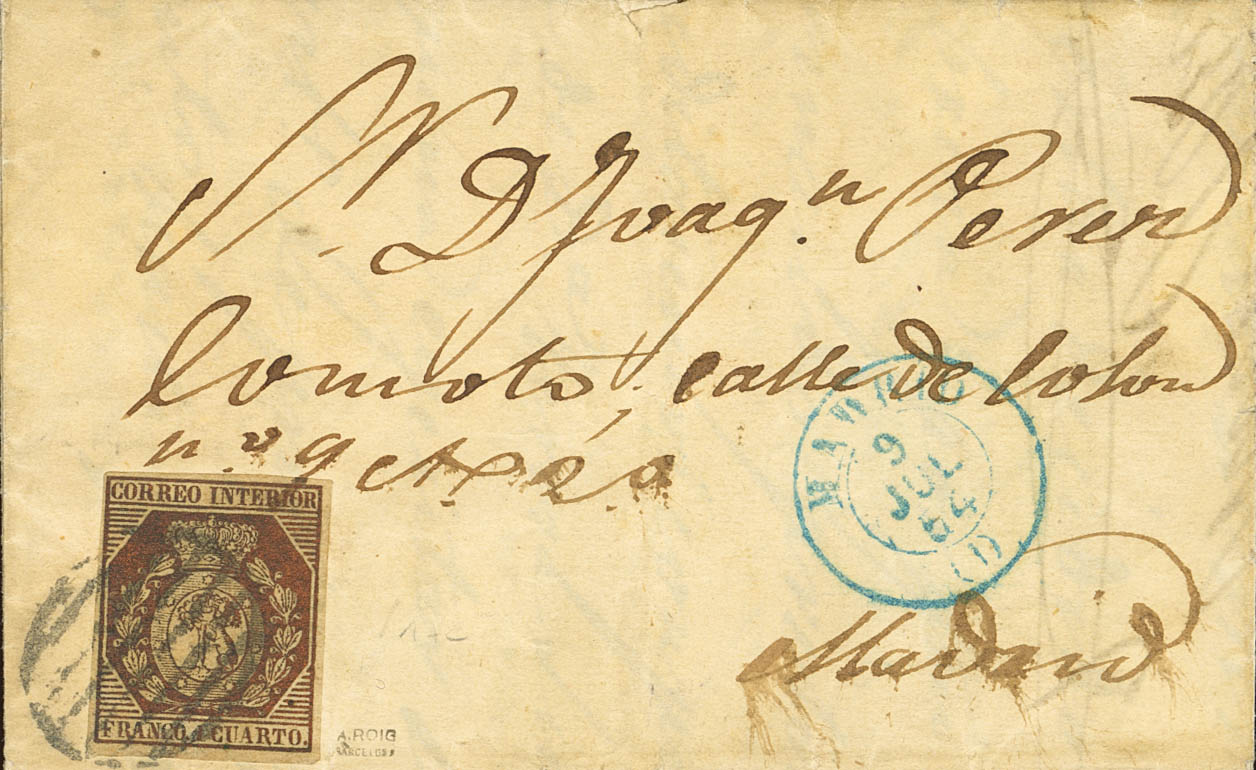 Sr. D Joaqn. Perez
Comoto, calle de Colon
n.o 9 2o
Madrid
MADRID
9
JUL
54
(1)
CORREO INTERIOR
FRANCO. 1 CUARTO.
A. ROIG
BARCELONA